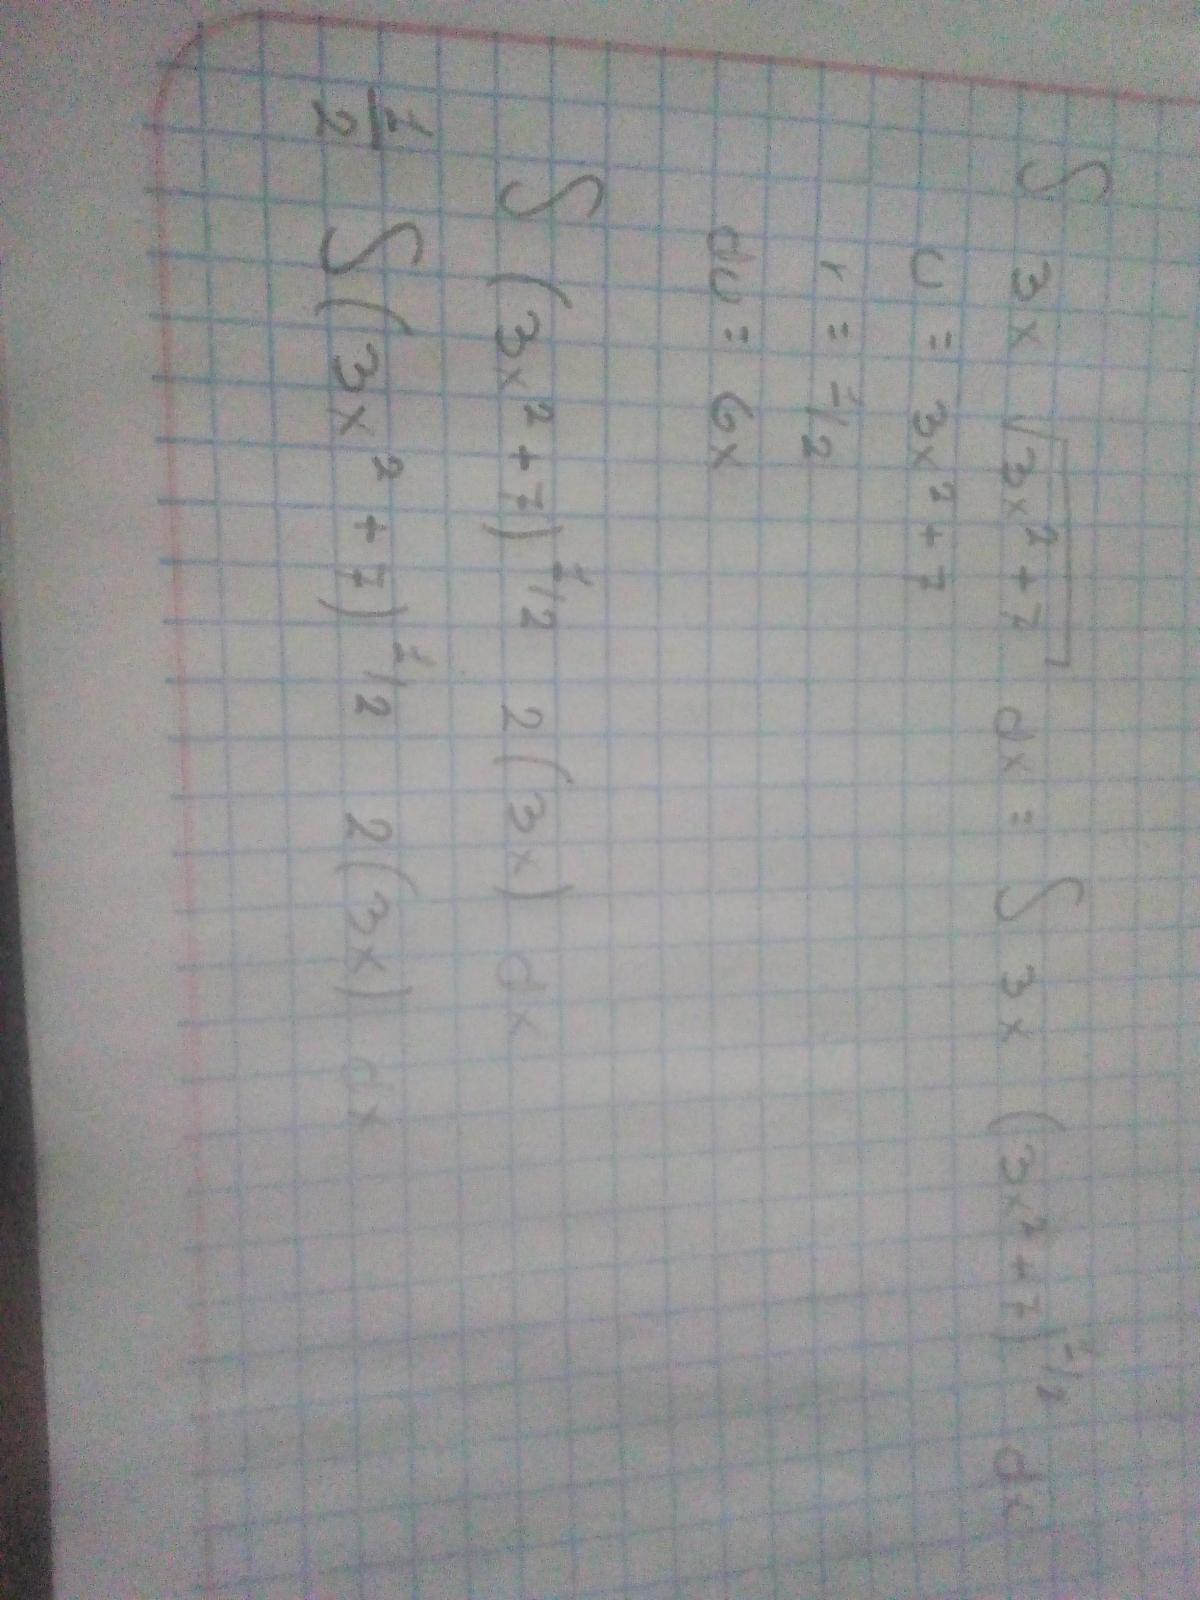 ∫ 3x √3x² + 7 dx = ∫ 3x (3x² + 7)^1/2 dx
u = 3x² + 7
r = 1/2
du = 6x
∫ (3x² + 7)^1/2 2(3x) dx
1/2 ∫ (3x² + 7)^1/2 2(3x) dx